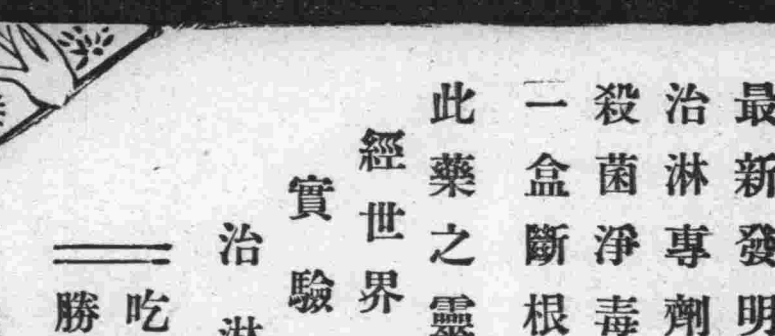 最新發明
治淋專劑
殺菌淨毒
一盒斷根
此藥之靈
經世界
實驗
治淋
吃
勝